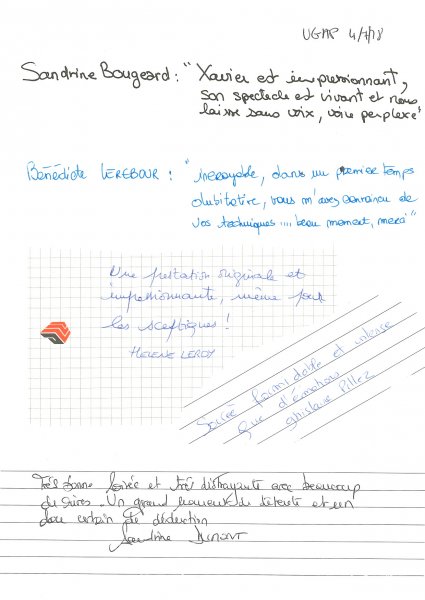 UGAP 4/7/18
Sandrine Bougeard : "Xavier est impressionnant,
son spectacle est vivant et nous
laisse sans voix, voire perplexe"
Bénédicte LEREBOUR : "incroyable, dans un premier temps
dubitative, vous m'avez convaincu de
vos techniques .... beau moment, merci"
Une prestation originale et
impressionnante, même pour
les sceptiques !
HELENE LEROY
Soirée formidable et
que d'émotions
Ghislaine
Très bonne soirée et très distrayante avec beaucoup
de rires. Un grand moment de détente et un
don certain de déduction
Sandrine